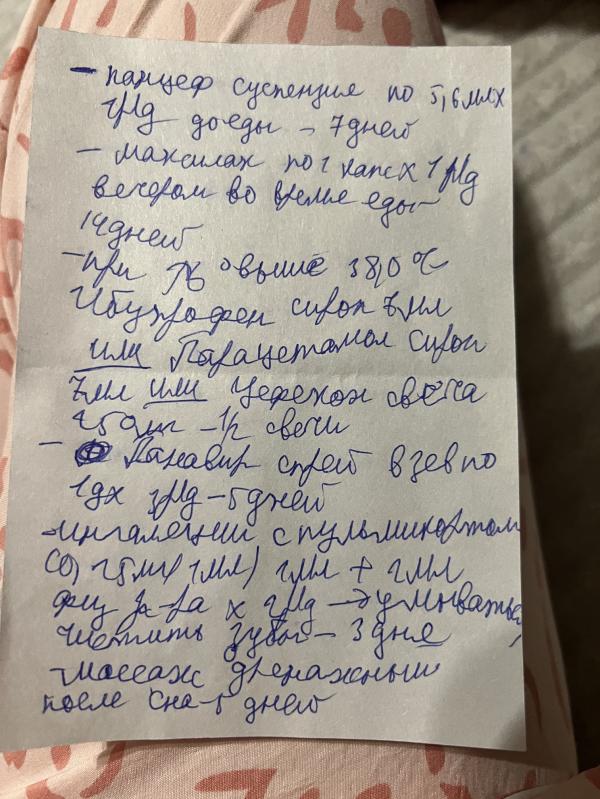 - панцеф суспензия по 5,6 мл х
1р/д до еды - 7 дней
- максилак по 1 капс х 1р/д
вечером во время еды
14 дней
- при выше 38,0 °C
Ибупрофен сироп 7 мл
или Парацетамол сироп
7 мл или Цефекон свеча
- свечи
- Панавир спрей в зев по
1д х - 5 дней
- ингаляции с пульмикортом
+ 2 мл
физ р-ра х 2р/д → умываться
чистить зубы - 3 дня
- массаж дренажный
после сна - 5 дней